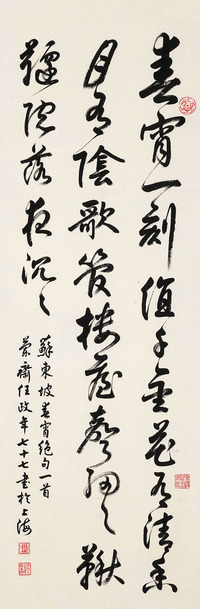 春宵一刻值千金花有清香
月有陰歌管樓臺聲細〻鞦
韆院落夜沉〻
蘇東坡春宵絕句一首
蘭齋任政年七十七書於上海